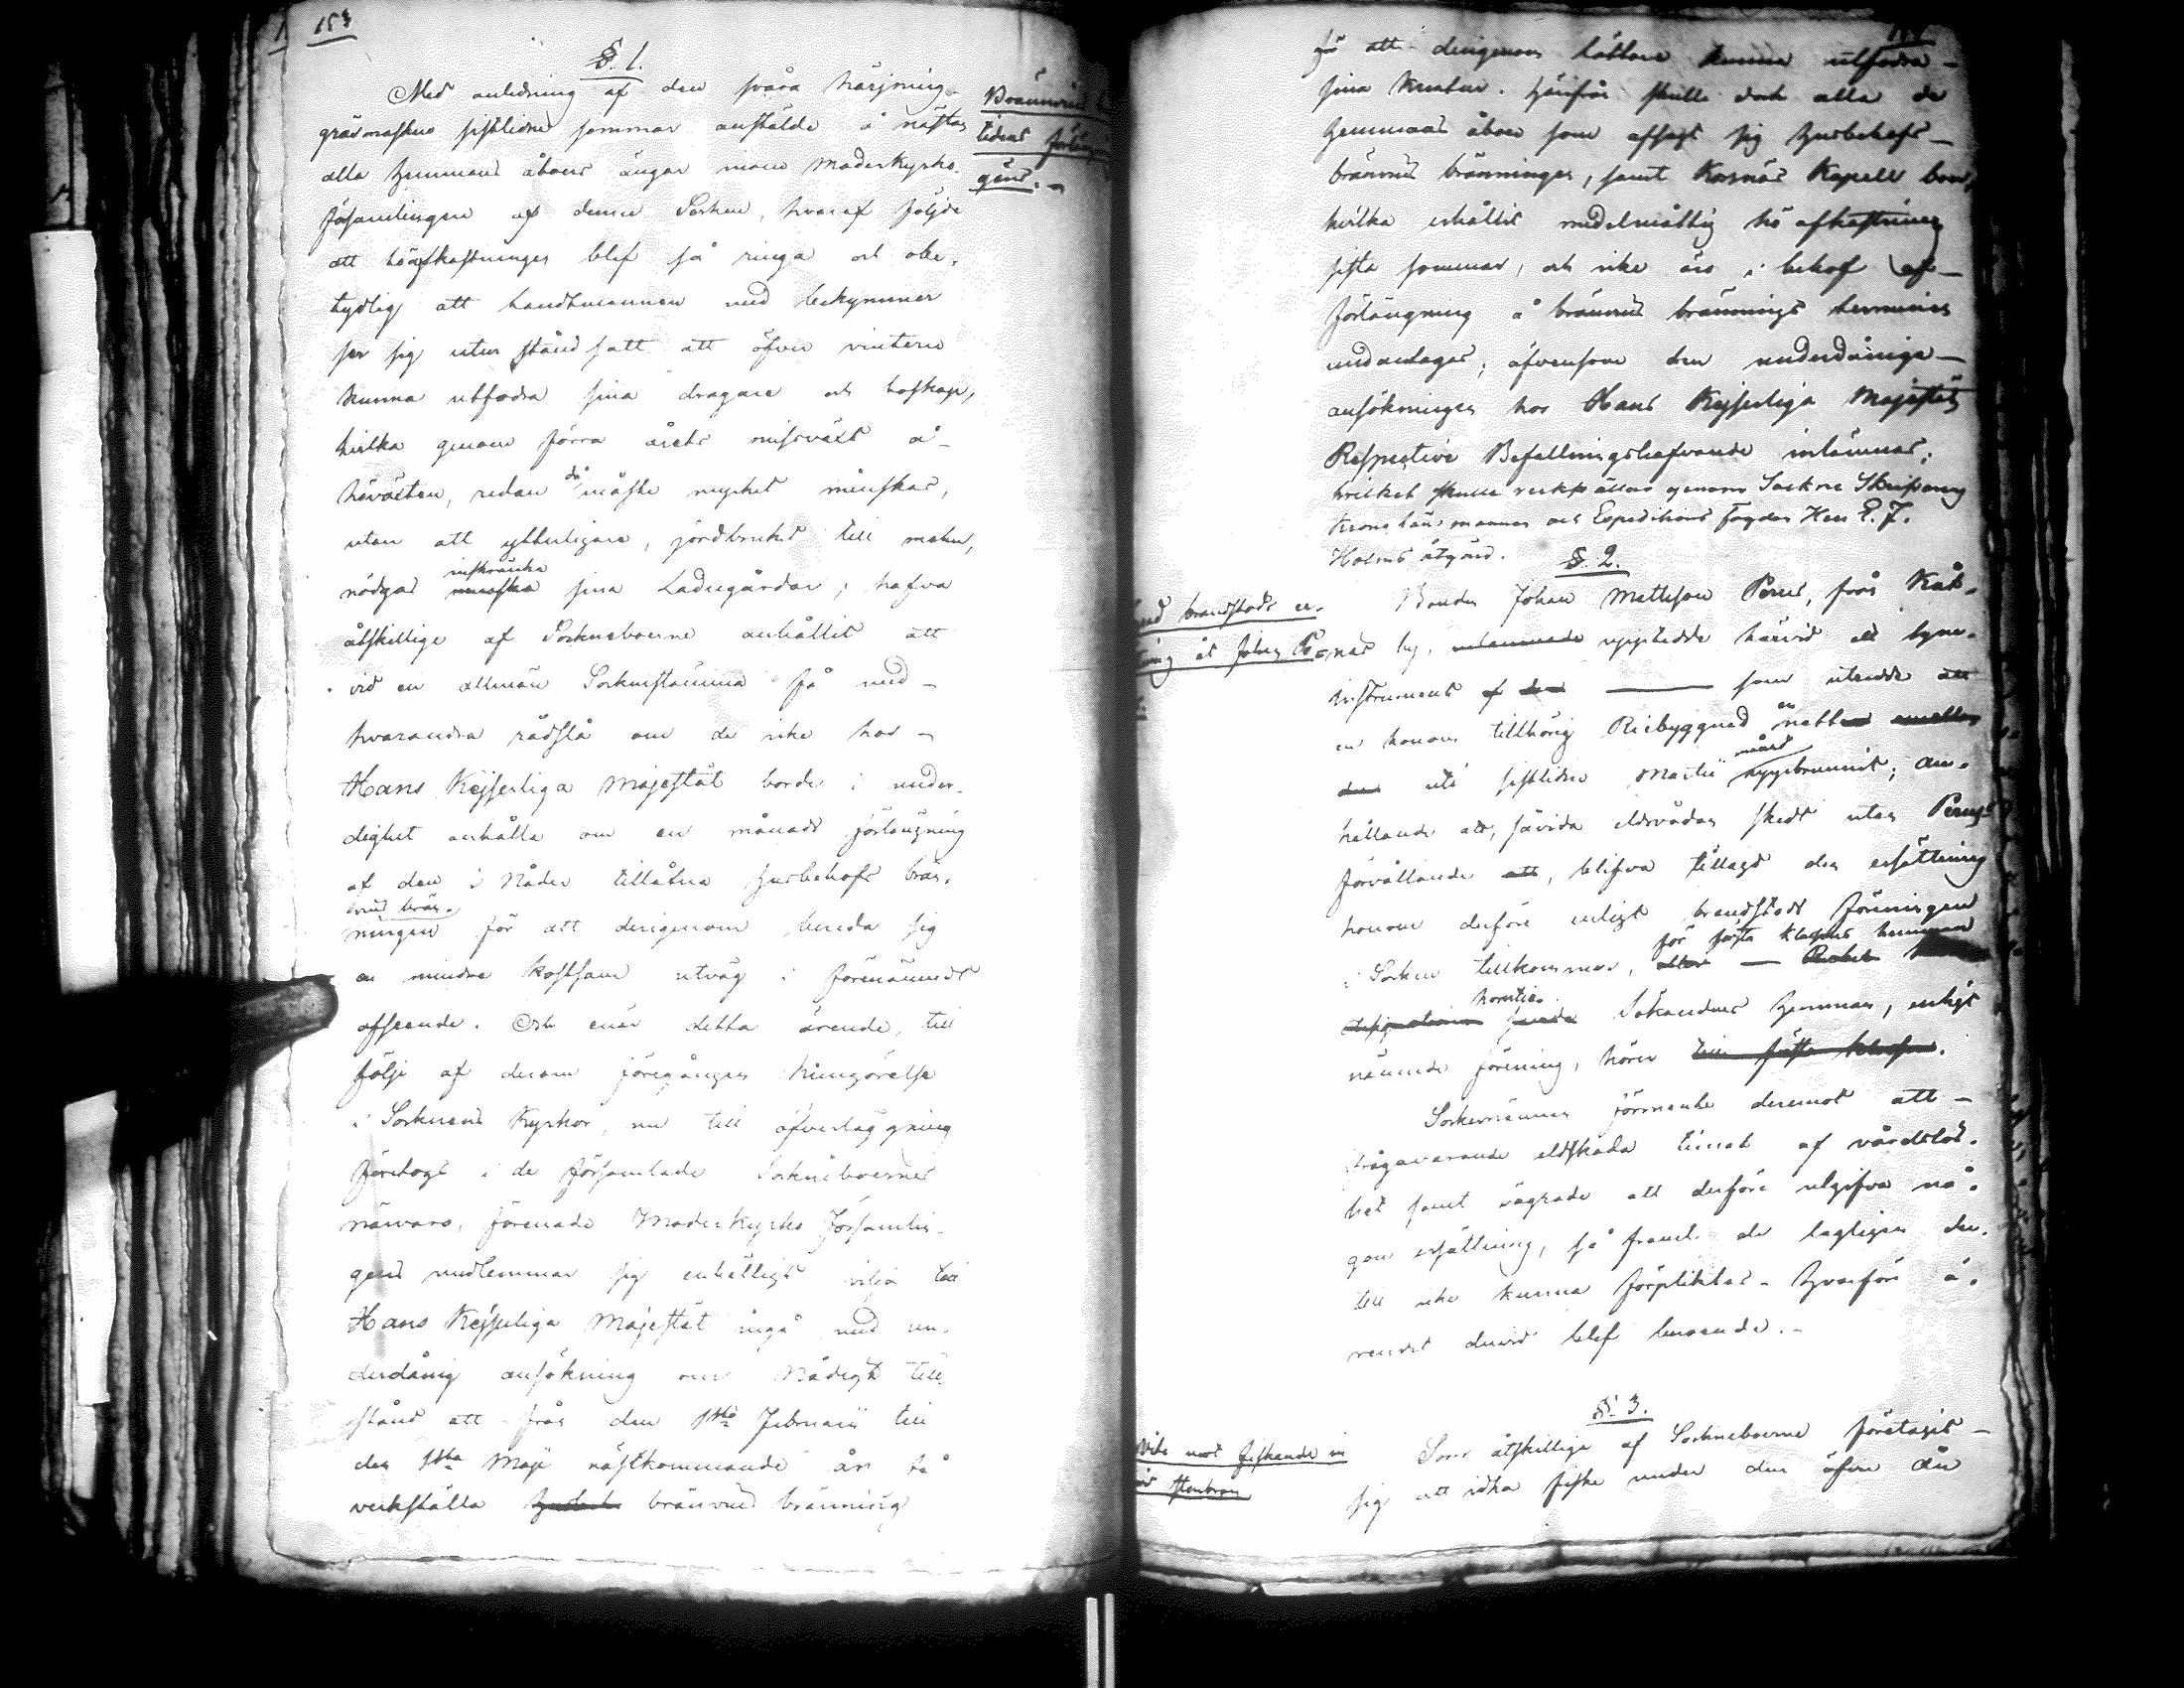 153
§. 1.
Med anledning af den svåra härjning
gräsmasken sistlidne sommar anstälde å nästan
alla Hemmans åboers ängar inom Moderkyrko
församlingen af denne Socken, hvaraf följde
att höafkastningen blef så ringa och obe-
tydlig att landtmannen med bekymmer
ser sig utur stånd satt att öfver vintern
kunna utfodra sina dragare och boskap,
hvilka genom förra årets missväxt å
höväxten, redan då måste mycket minskas,
utan att ytterligare, jordbruket till mehn,
nödgas minska inskränka sina Ladugårdar; hafva
åtskillige af Sockneboerne anhållit att
vid en allmän Socknestämma få med
hvarandra rådslå om de icke hos
Hans Kejserliga Majestät borde i under-
dighet anhålla om en månads förlängning
af den i Nåder tillåtna Husbehofs brän-
vins brän-
ningen för att derigenom bereda sig
en mindre kostsam utväg i förenämndt
afseende. Och enär detta ärende, till
följe af derom föregången kungörelse
i Socknens Kyrkor, nu till öfverläggning
företogs i de församlade Sockneboernes
närvaro, förenade Moderkyrko församlin-
gens medlemmar sig enhälligt vilja till
Hans Kejserliga Majestät ingå med un-
derdånig ansökning om Nådigt till-
stånd att från den 1sta Februarii till
den 1sta Maji nästkommande år få
verkställa bränvins bränning
Bränvins
tidens förlän
gning.
för att derigenom lättare kunna utfodra
sina Kreatur. Härifrån skulle dock alla de
Hemmans åboer som afsagt sig Husbehofs
bränvins bränningen, samt Korsnäs Kapell boer,
hvilka erhållit medelmåttig hö afkastning
sista sommar, och icke äro i behof af
förlängning å bränvins brännings terminen
undantagas; äfvensom den underdåniga
ansökningen hos Hans Kejserliga Majestäts
Respective Befallningshafvande inlämnas,
hvilket skulle verkställas genom Sockne Skrifvaren
Kronolänsmannen och Expeditions Fogden Herr E. J.
Holms åtgärd.
§. 2.
Bonden Johan Mattsson Perus, från
näs by, uppstedde härvid ett syne-
instrument af den som utredde att
en honom tillhörig Riebyggnad en natt
den uti sistlidne Martii månad uppbrunnit; an-
hållande att, såvida eldsvådan skedt utan Perus
förvållande att, blifva tillagd den ersättning
honom derföre enligt brandstods föreningen
i Socken tillkommer, för första klassens hemman
hvartill Sökandens Hemman, enligt
nämnde förening, hörer till första klassen.
Sockenmännen förmente deremot att
frågavarande eldskada timat af vårdslös-
het samt vägrade att derföre utgifva nå-
gon ersättning, så framt de lagligen der-
till icke kunna förpliktas. Hvarföre ä-
rendet dervid blef beroende.
§. 3.
Som åtskillige af Sockneboerne företagit
sig att idka fiske under den öfver ån
med brandstods er-
ning åt Johan Pe-
Vite mot fiskande in
vid stenbron